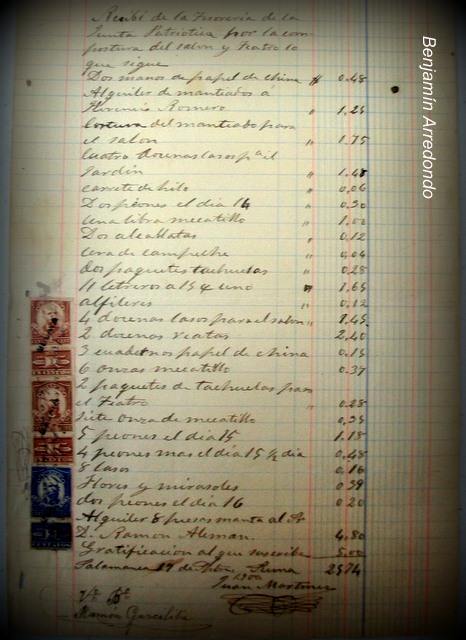 Recibí de la Tesorería de la
Junta Patriotica por la com
postura del salon y Teatro lo
que sigue
Dos manos de papel de china $ 0.48
Alquiler de manteados á
Florencio Romero " 1.25
Costura del manteado para
el salon " 1.75
Cuatro docenas lasos pa el
Jardin " 1.48
carrete de hilo " 0.06
Dos peones el dia 14 " 0.50
una libra mecatillo " 1.00
Dos alcallatas " 0.12
Cera de campeche " 0.04
dos paquetes tachuelas " 0.28
11 letreros a 15 ¢ uno " 1.65
alfileres " 0.12
4 docenas lasos para el salon " 1.45
2 docenas reatas 2.40
3 cuadernos papel de china 0.15
6 onzas mecatillo 0.37
2 paquetes de tachuelas para
el Teatro " 0.28
siete onzas de mecatillo 0.35
5 peones el dia 15 1.18
4 peones mas el dia 15 ½ dia 0.48
8 lasos 0.16
Flores y mirasoles 0.39
dos peones el dia 16 0.20
Alquiler 8 piesas manta al Sr
D. Ramon Aleman 4.80
Gratificacion al que suscribe 5.00
Salamanca 17 de Suma
1900
Juan Martinez
Vto Bo
Ramón
Benjamín Arredondo